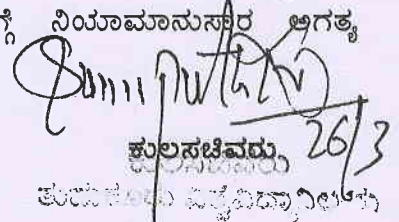 ನಿಯಮಾನುಸಾರ ಅಗತ್ಯ
26/3
ಕುಲಸಚಿವರು
ತುಮಕೂರು ವಿಶ್ವವಿದ್ಯಾನಿಲಯ